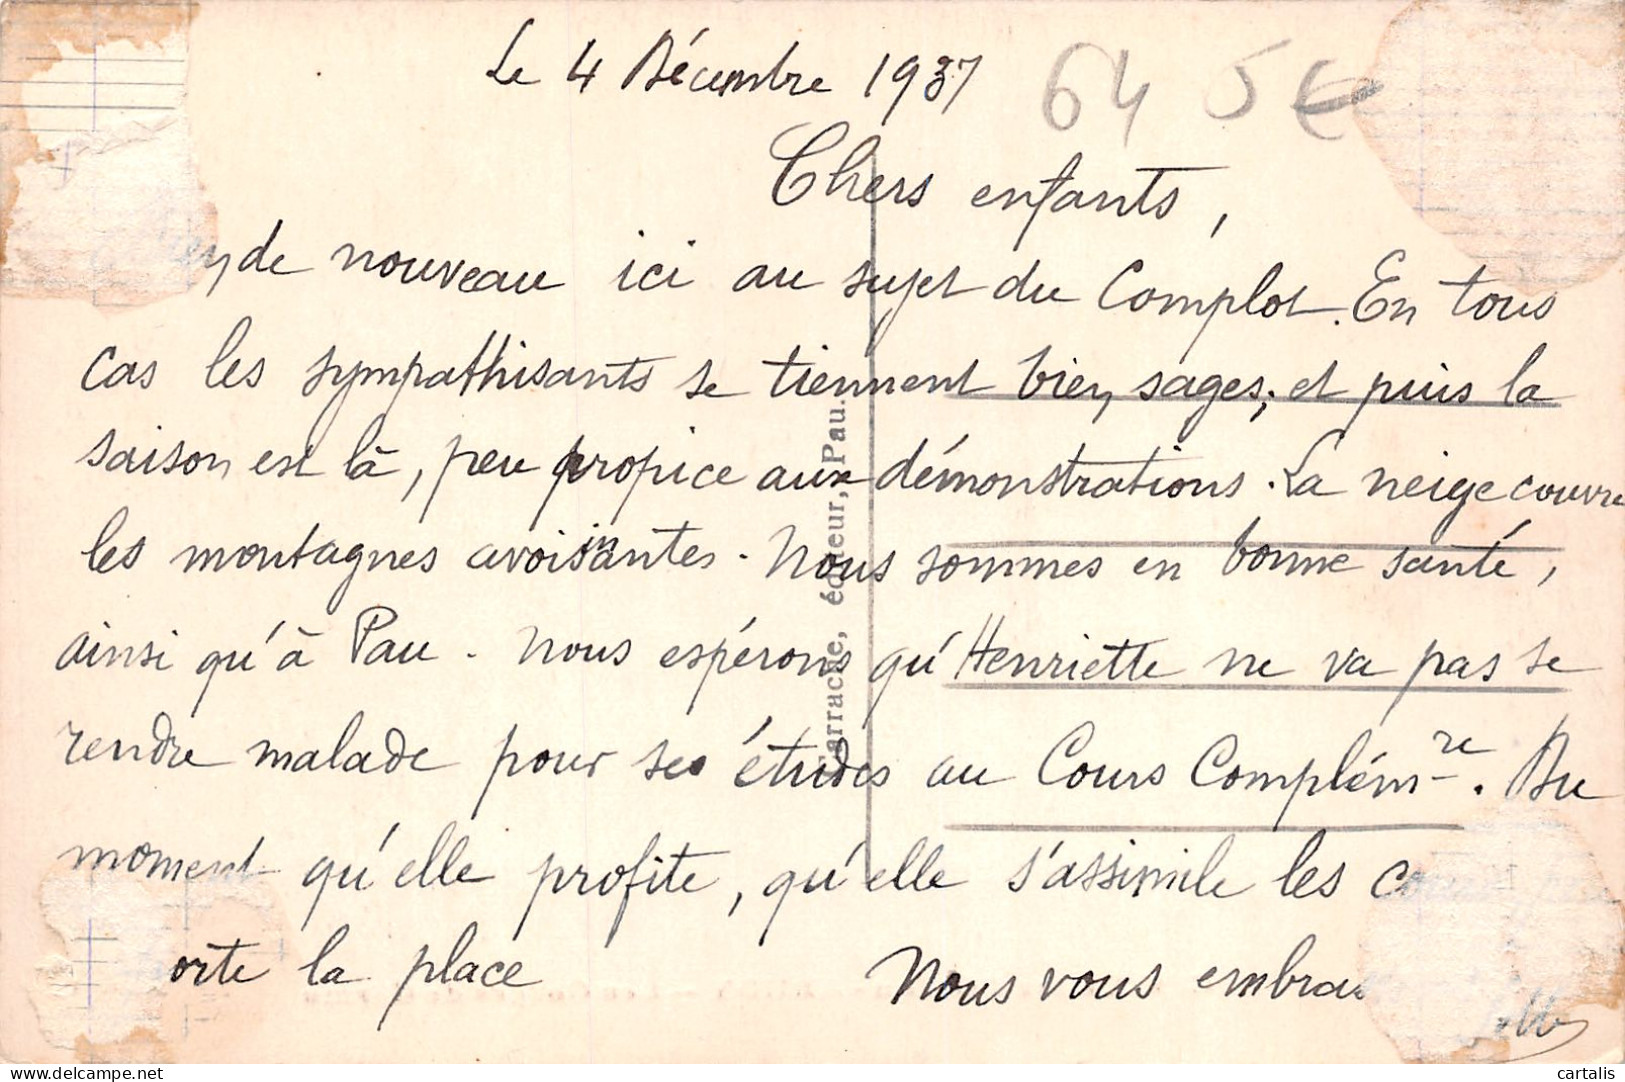 Le 4 Décembre 1937
64 5€
Chers enfants,
de nouveau ici au sujet du Complot. En tous
cas les sympathisants se tiennent bien sages; et puis la
saison est là, peu propice aux démonstrations. La neige couvre
les montagnes avoisinantes. Nous sommes en bonne santé,
ainsi qu'à Pau. Nous espérons qu'Henriette ne va pas se
rendre malade pour ses études au Cours Complémre. Du
moment qu'elle profite, qu'elle s'assimile les
orte la place
Nous vous embras
Carrache, éditeur, Pau.
cartalis
delcampe.net